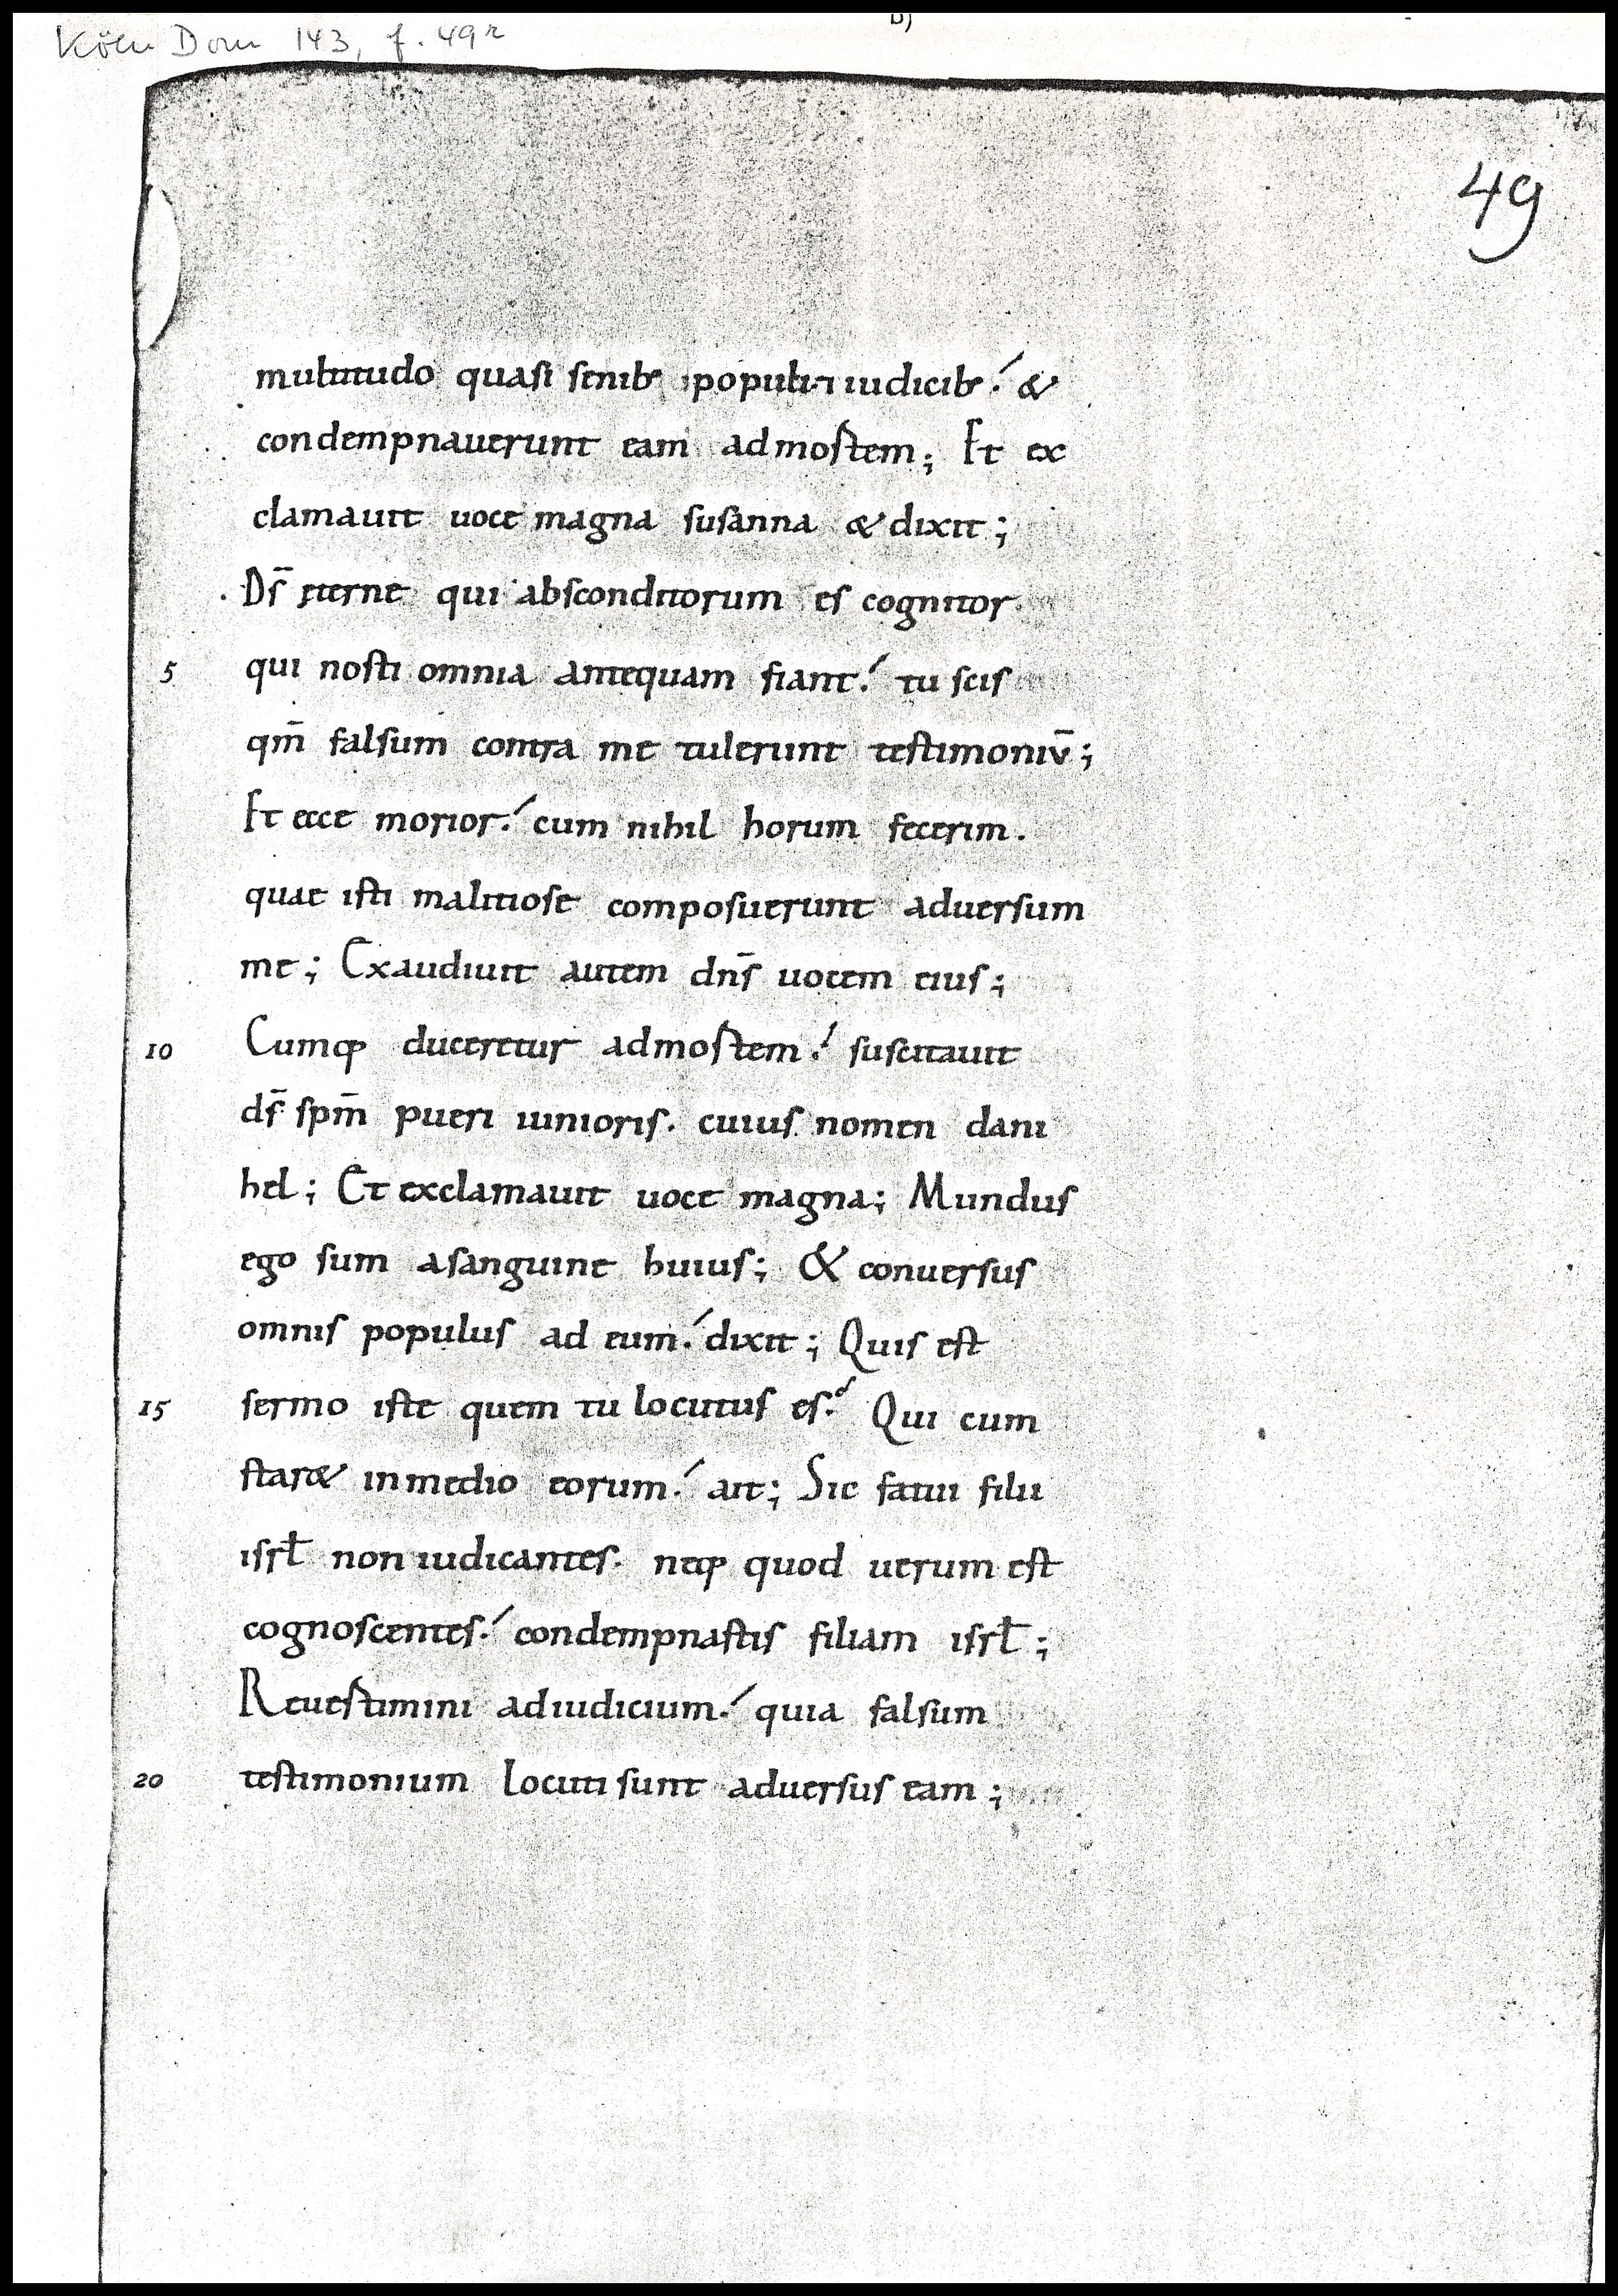 Köln Dom 143, f. 49r
b)
49
multitudo quasi senib; populi ⁊ iudicib; &
condempnauerunt eam ad mortem; Et ex
clamauit uoce magna susanna & dixit;
Ds̄ ęterne qui absconditorum es cognitor.
5 qui nosti omnia antequam fiant! tu scis
qm̄ falsum contra me tulerunt testimoniū;
Et ecce morior! cum nihil horum fecerim.
quae isti malitiose composuerunt aduersum
me; Exaudiuit autem dn̄s uocem eius;
10 Cumq; duceretur ad mortem! suscitauit
ds̄ spm̄ pueri iunioris. cuius nomen dani
hel; Et exclamauit uoce magna; Mundus
ego sum a sanguine huius; & conuersus
omnis populus ad eum! dixit; Quis est
15 sermo iste quem tu locutus es? Qui cum
star& in medio eorum! ait; Sic fatui filii
isrł non iudicantes. neq; quod uerum est
cognoscentes! condempnastis filiam isrł;
Reuertimini ad iudicium! quia falsum
20 testimonium locuti sunt aduersus eam;